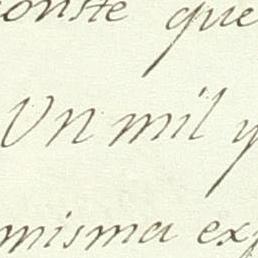 conste que
Un mil y
misma exp